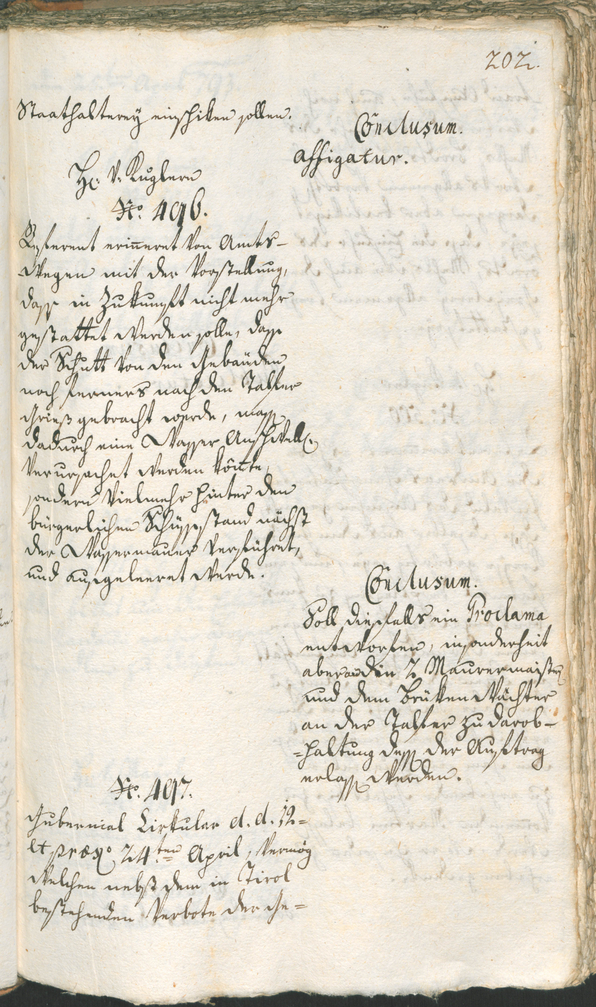 202.
Staathalterey einschiken sollen.
Conclusum.
affigatur.
H: v. Kuglern
No. 496.
Referent erinneret von Amts-
wegen mit der Vorstellung,
dass in Zukunft nicht mehr
gestattet werden solle, dass
der Schutt von den Gebäuden
noch ferners nach den Talfer
Gries gebracht werde, mass
dadurch eine Wasser Anschwell
verursachet werden könnte,
sondern vielmehr hinter den
bürgerlichen Schiessstand nächst
der Wassermauer verführet,
und ausgeleeret werde.
Conclusum.
Soll diesfalls ein Proclama
entworfen, insonderheit
aber an die 2 Maurermaister
und dem Bruken Wächter
an der Talfer zu darob-
haltung dess der Auftrag
erlass werden.
No. 497.
Gubernial Cirkular d. d. 12-
et præs. 24ten April, vermög
welchen nebst dem in Tirol
bestehenden Verbote der Ge=